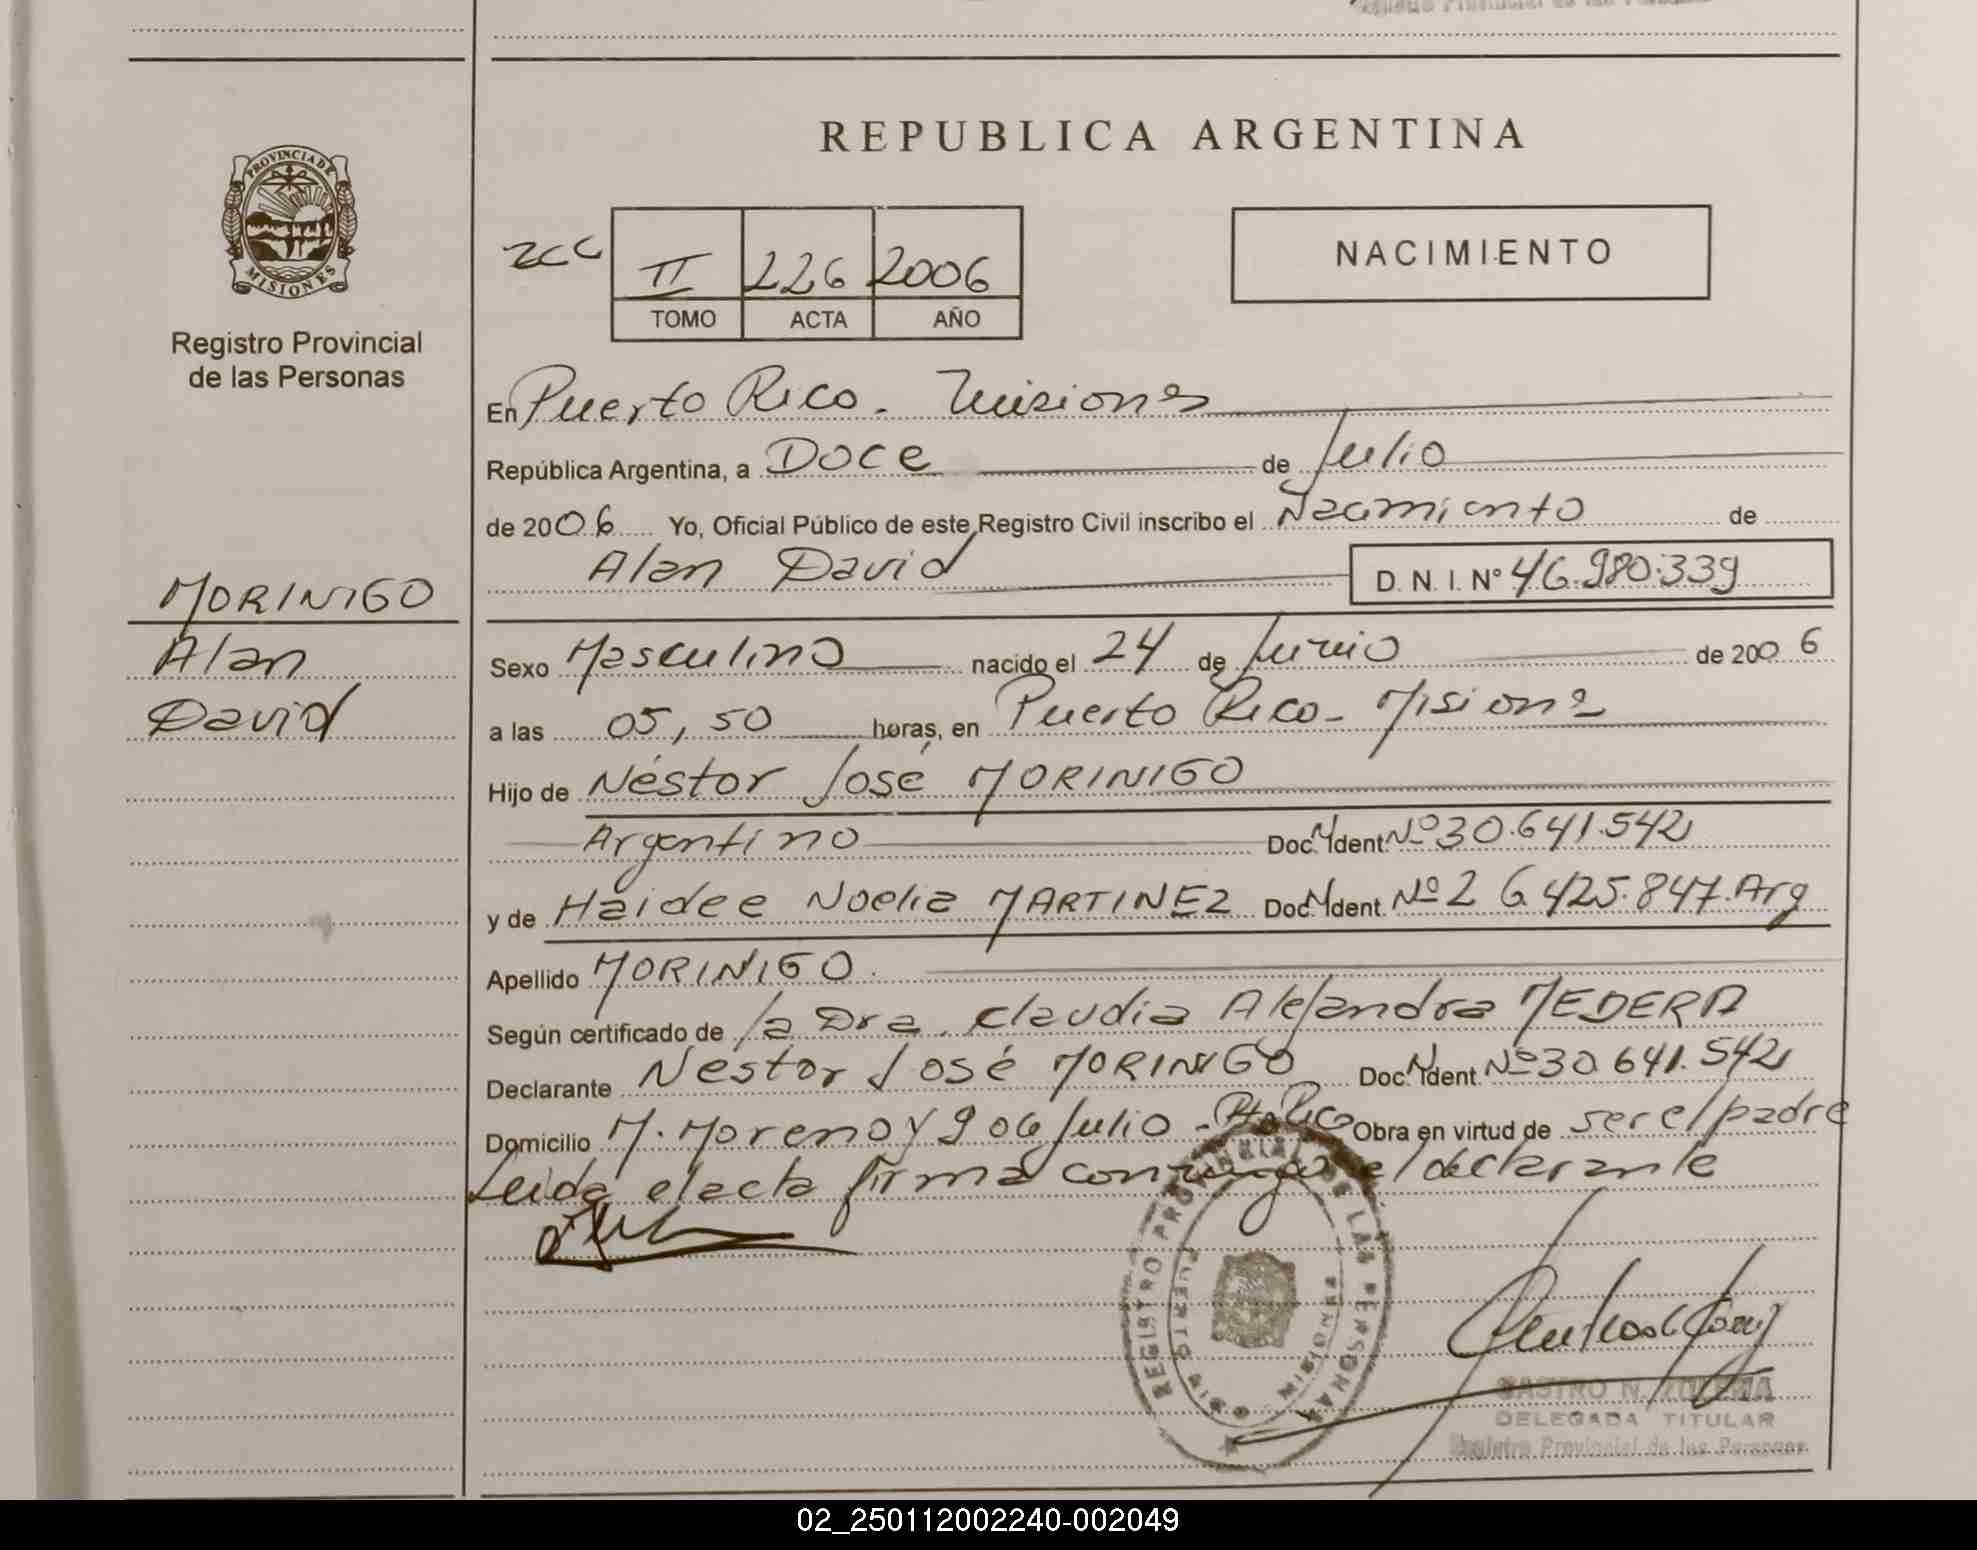 REPUBLICA ARGENTINA
PROVINCIA DE
MISIONES
Registro Provincial
de las Personas
II 226 2006
TOMO ACTA AÑO
NACIMIENTO
En Puerto Rico. Misiones
República Argentina, a Doce de Julio
de 2006 Yo, Oficial Público de este Registro Civil inscribo el Nacimiento de
Alan David D. N. I. Nº 46.980.339
MORINIGO
Alan
David
Sexo Masculino nacido el 24 de Junio de 2006
a las 05,50 horas, en Puerto Rico - Misiones
Hijo de Néstor José MORINIGO
Argentino Doc. N. Ident Nº 30.641.542
y de Haidee Noelia MARTINEZ Doc. N. Ident. Nº 26.425.847. Arg
Apellido MORINIGO.
Según certificado de la Dra. Claudia Alejandra MEDERA
Declarante Nestor José MORINIGO Doc. N. Ident. Nº 30.641.542
Domicilio M. Moreno y 9 de Julio - Pto Rico Obra en virtud de ser el padre
Leida el acta firma conmigo el declarante
REGISTRO PROVINCIAL DE LAS PERSONAS
PUERTO RICO MISIONES
CASTRO N. ZULEMA
DELEGADA TITULAR
Registro Provincial de las Personas
02_250112002240-002049